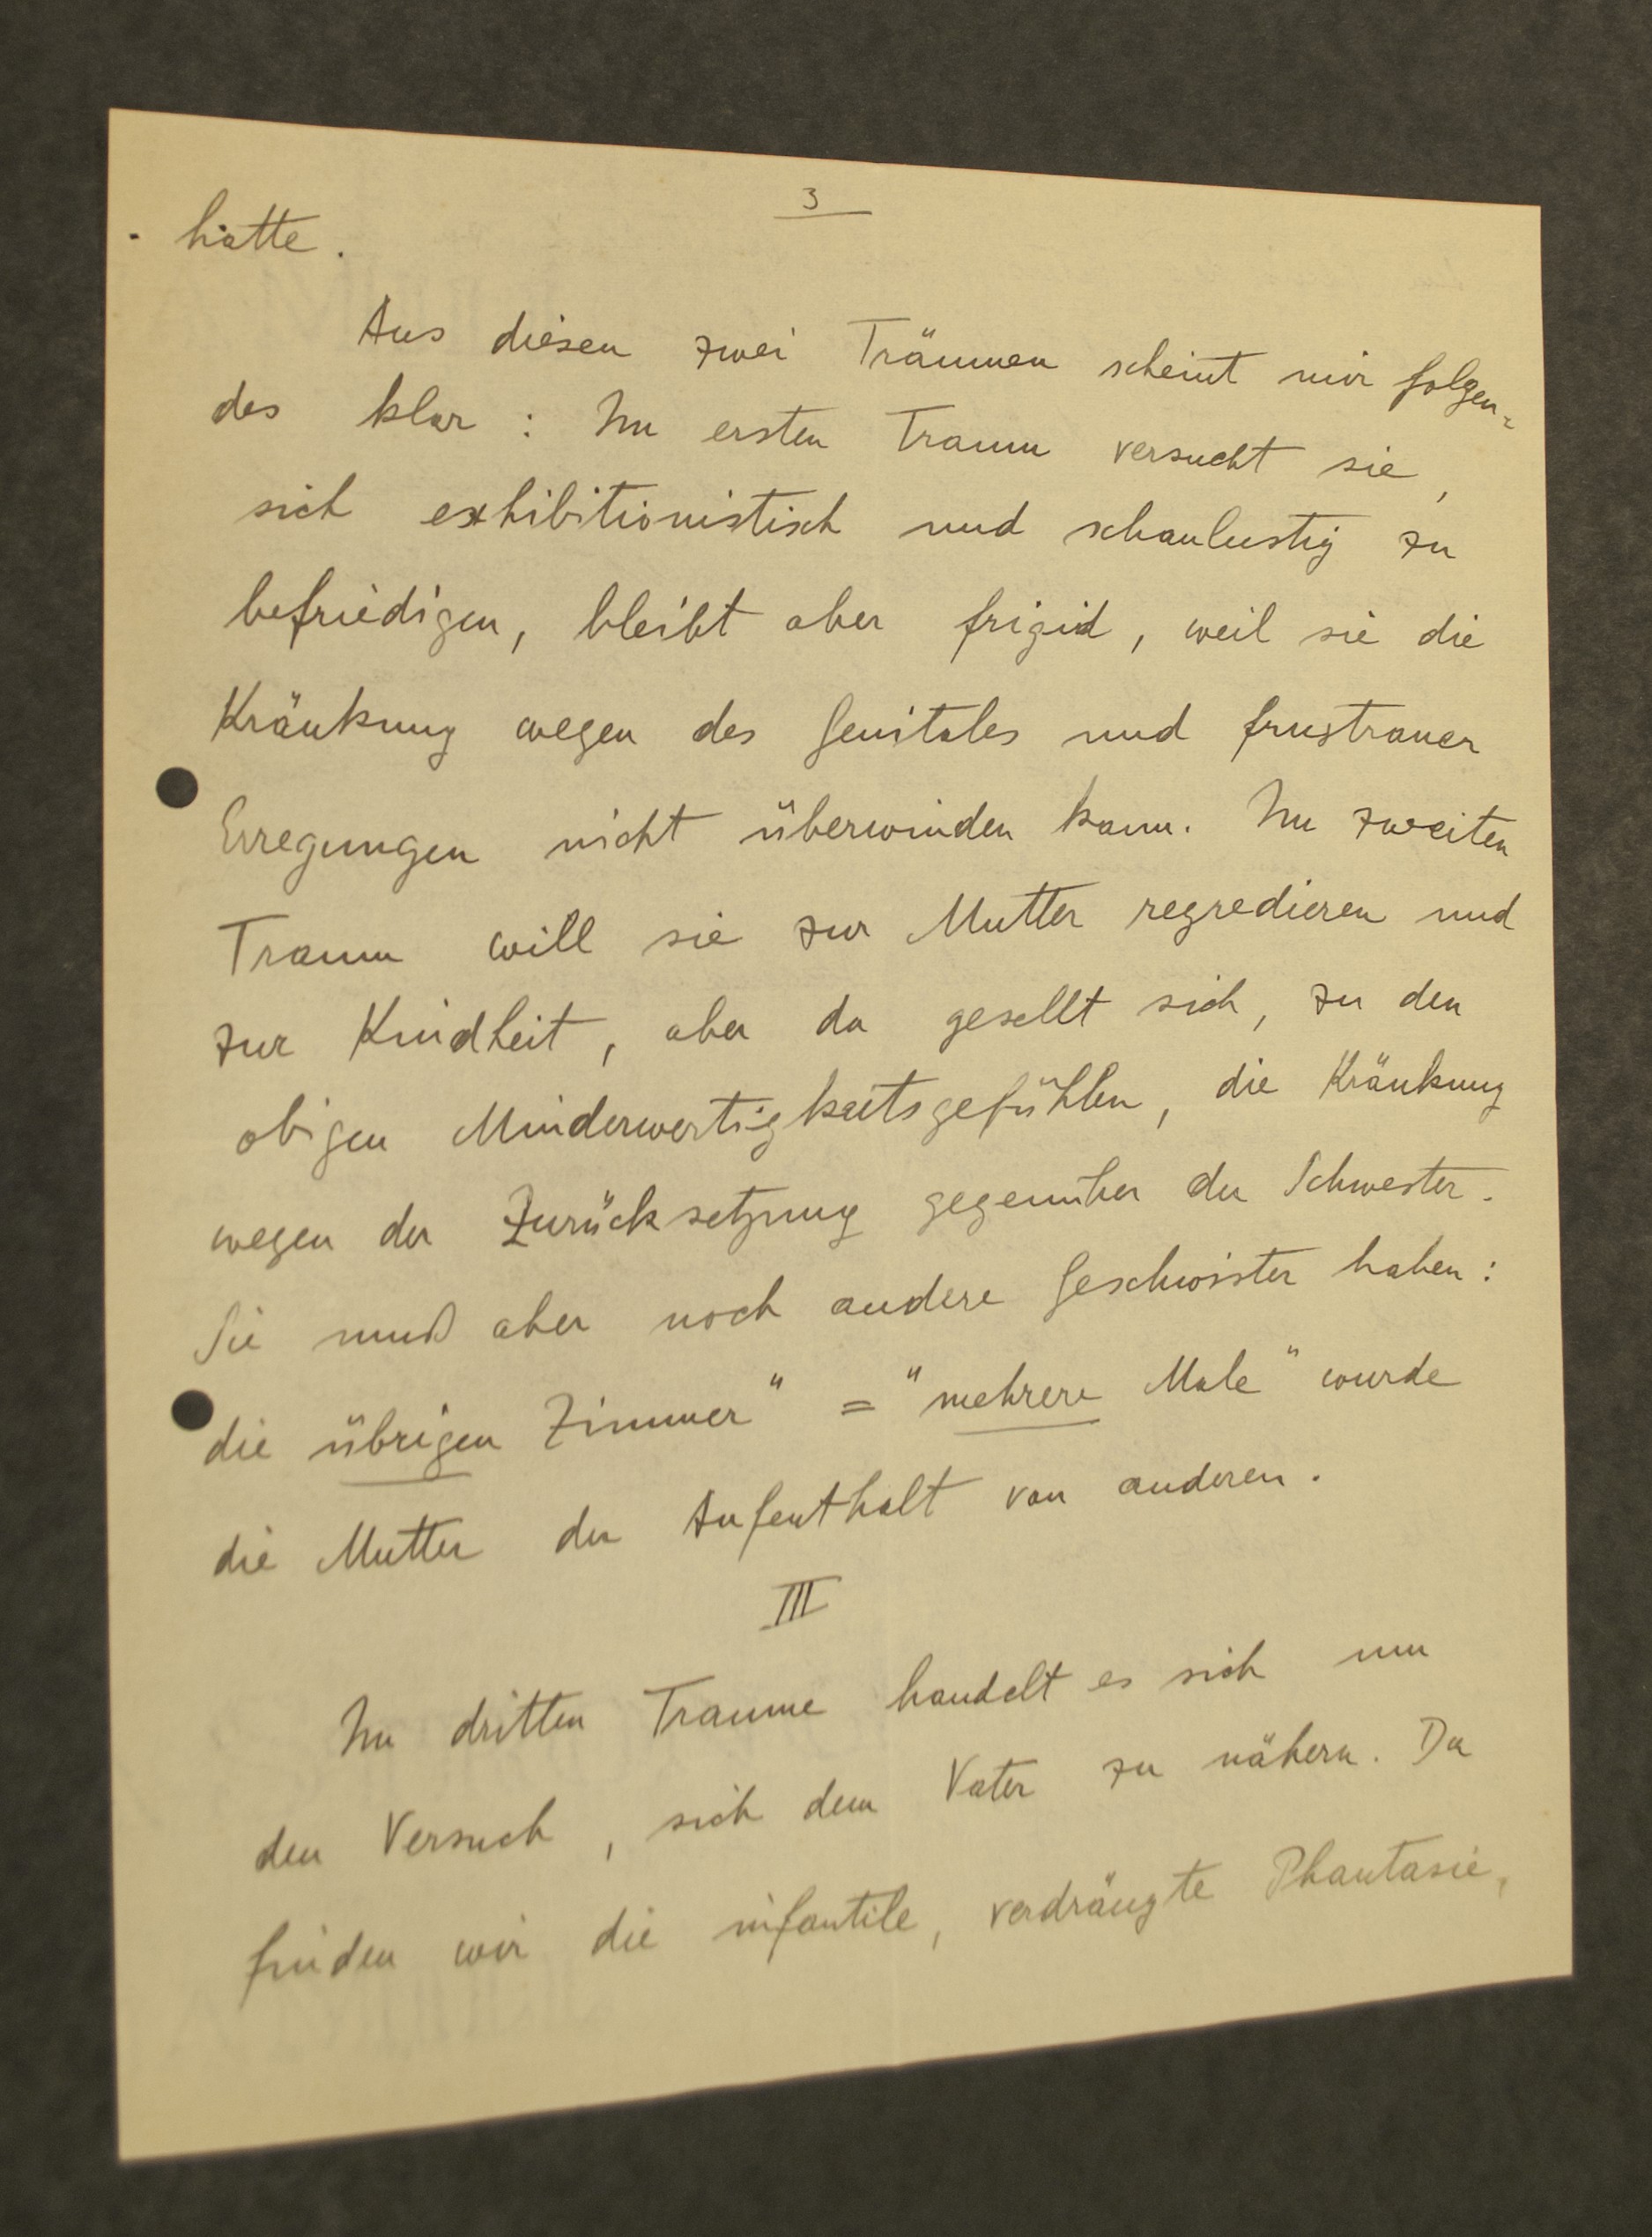 3
hätte.
Aus diesen zwei Träumen scheint mir folgen-
des klar: Im ersten Traum versucht sie,
sich exhibitionistisch und schaulustig zu
befriedigen, bleibt aber frigid, weil sie die
Kränkung wegen des Genitales und frustraner
Erregungen nicht überwinden kann. Im zweiten
Traum will sie zur Mutter regredieren und
zur Kindheit, aber da gesellt sich, zu den
obigen Minderwertigkeitsgefühlen, die Kränkung
wegen der Zurücksetzung gegenüber der Schwester.
Sie muß aber noch andere Geschwister haben:
die übrigen Zimmer" = "mehrere Male" wurde
die Mutter der Aufenthalt von anderen.
III
Im dritten Traume handelt es sich um
den Versuch, sich dem Vater zu nähern. Da
finden wir die infantile, verdrängte Phantasie,